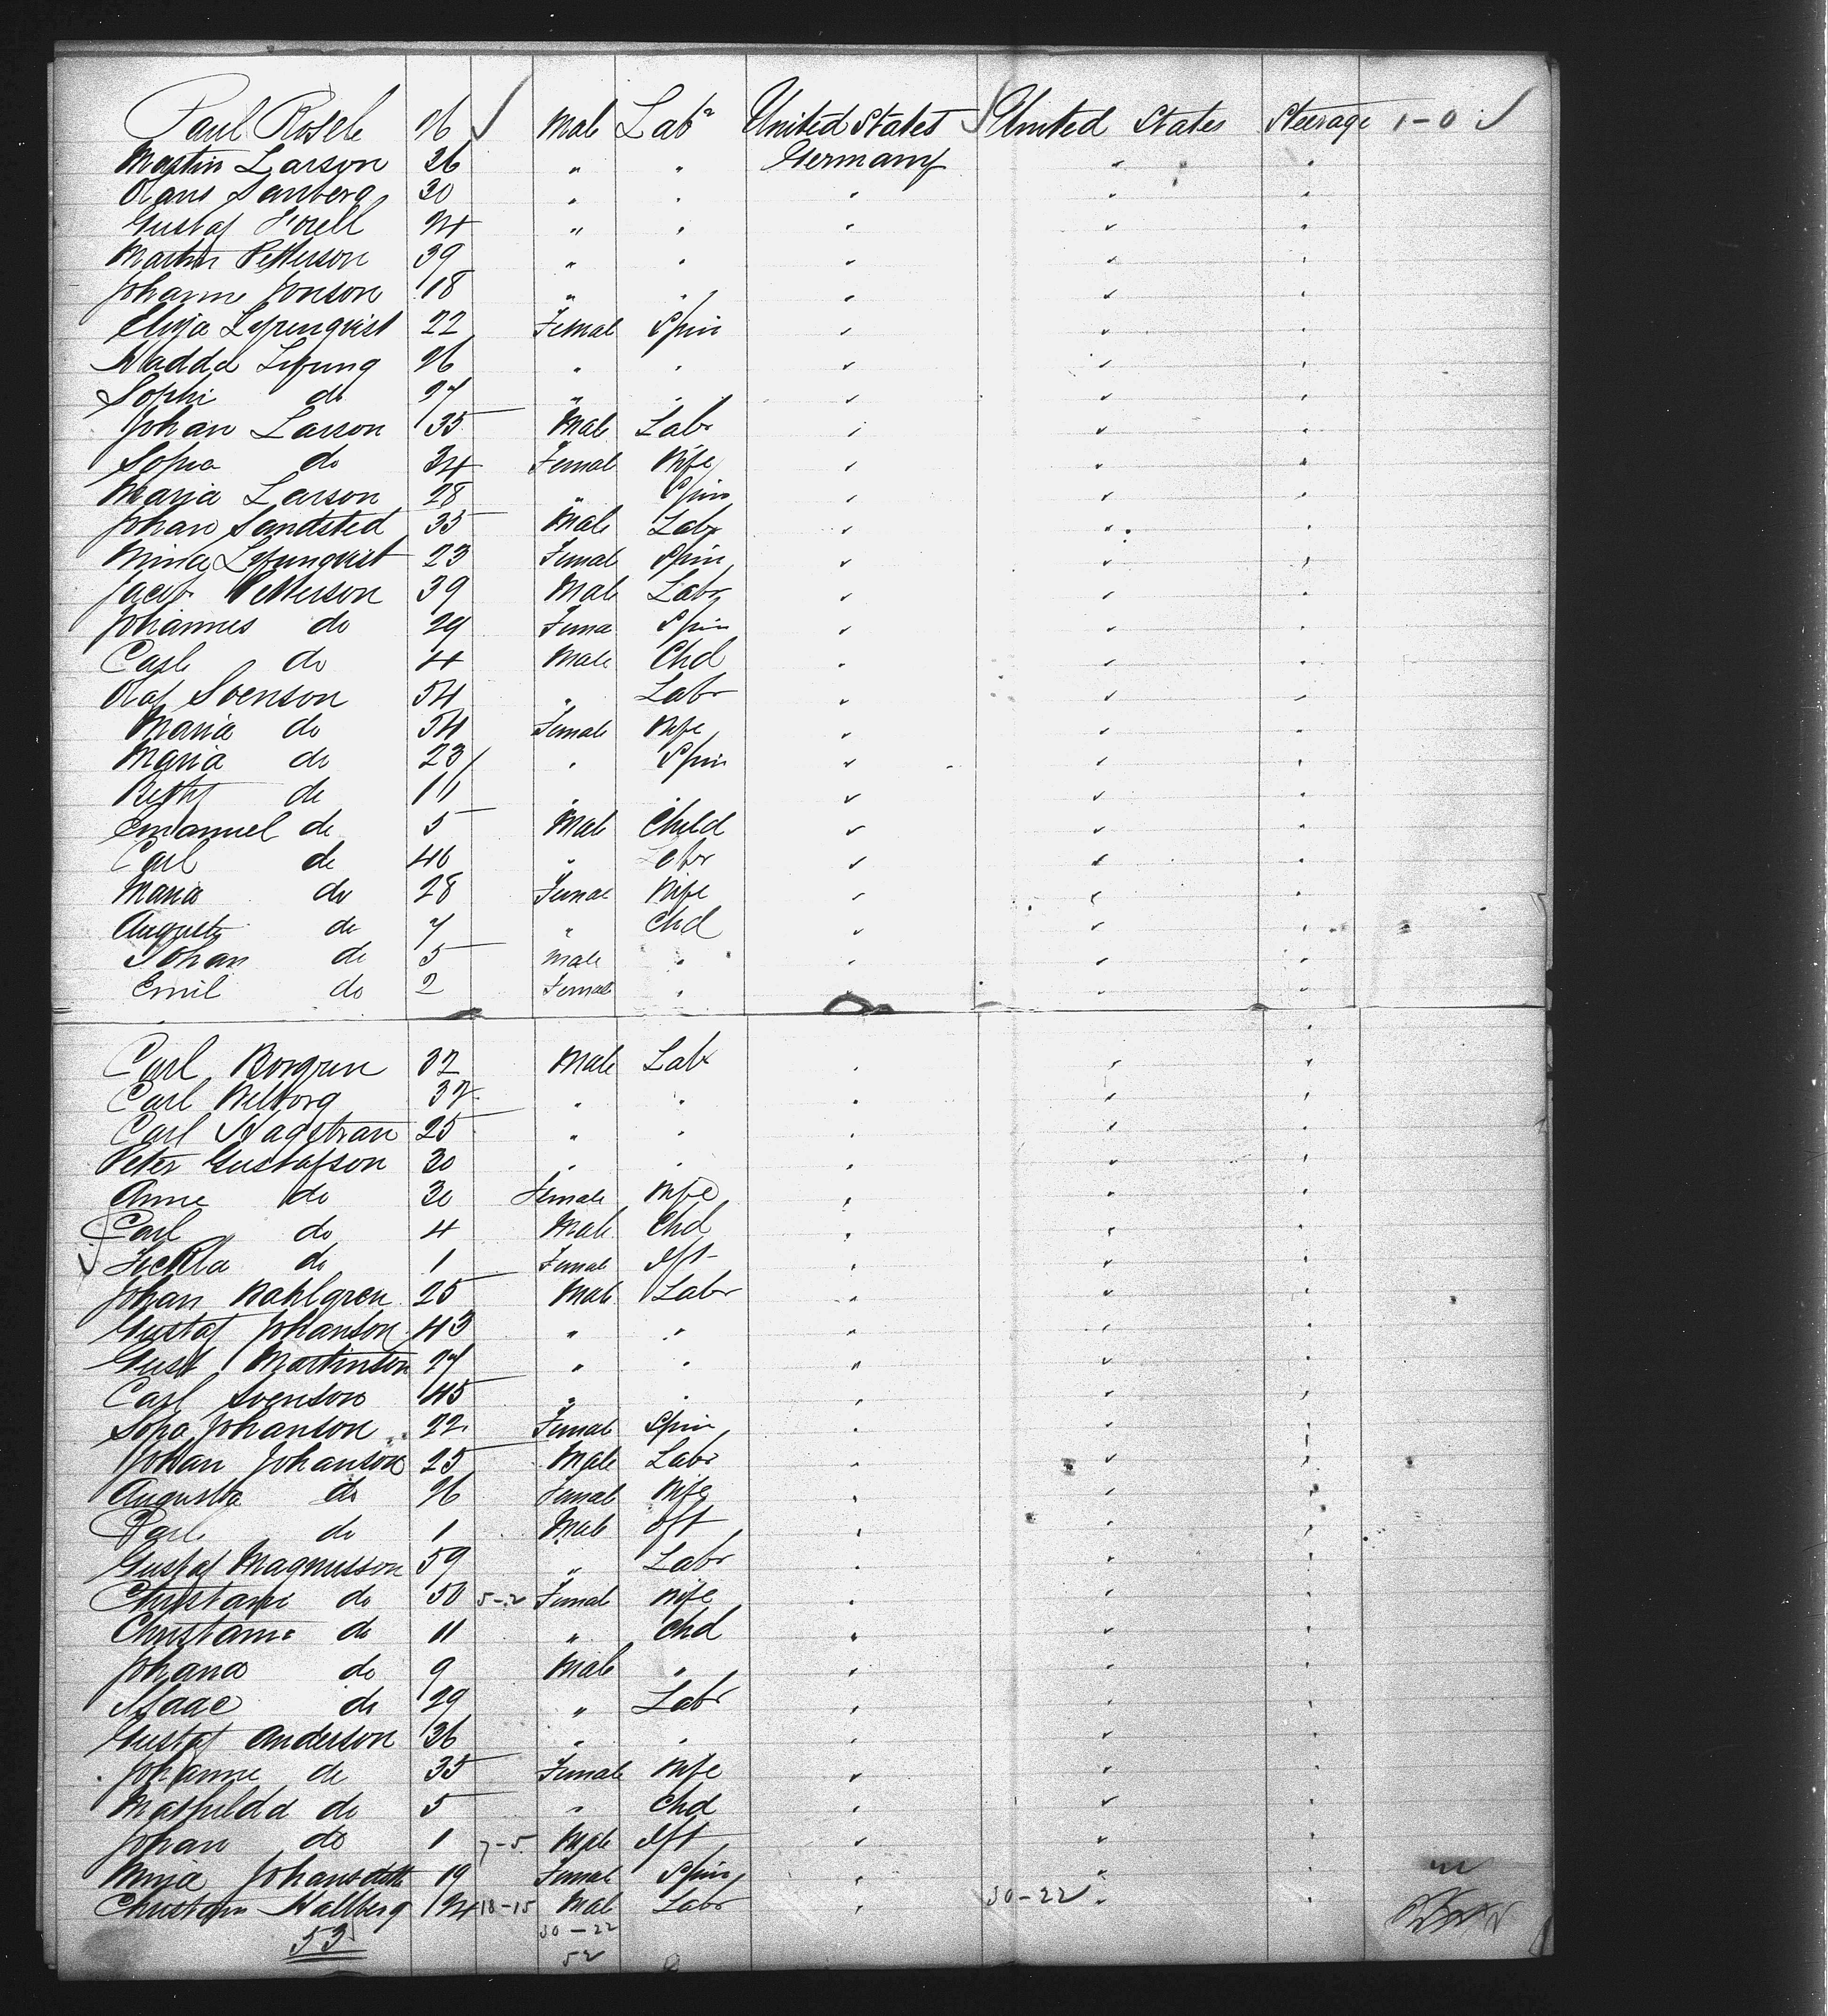 Paul Rosele 26 ✓ Male Labr United States ✓ United States Steerage 1-0 ✓
Martin Larson 26 " " Germany " "
Olans Sanberg 30 " " " " "
Gustaf Forell 24 " " " " "
Martin Petterson 39 " " " " "
Johanne Jonson 18 " " " " "
Elisja 22 Female Spin " " "
Hadda 26 " " " " "
Sophi do 27 " " " " "
Johan Larson 35 Male Labr " " "
Sofia do 34 Female Wife " " "
Maria Larson 28 " Spin " " "
Johan Sandsted 35 Male Labr " " "
Mina Ljunqvist 23 Female Spin " " "
Jacob Petterson 39 Male Labr " " "
Johannes do 29 Fema Spin " " "
Carl do 4 Male Chd " " "
Olaf Svenson 54 " Labr " " "
Maria do 54 Female Wife " " "
Maria do 23 " Spin " " "
do 16 " " " " "
Emanuel do 5 Male Child " " "
Carl do 46 " Labr " " "
Maria do 28 Female Wife " " "
August do 7 " Chd " " "
Johan do 5 male " " " "
Emil do 2 Female " " " "
Carl Borgren 32 Male Labr " " "
Carl Wilborg 32 " " " " "
Carl Hagstran 25 " " " " "
Peter Gustafson 30 " " " " "
Anna do 30 Female Wife " " "
Carl do 4 Male Chd " " "
do 1 Female Ift " " "
Johan Wahlgren 25 Male Labr " " "
Gustaf Johanson 43 " " " " "
Gust Martinson 27 " " " " "
Carl Svenson 45 " " " " "
Sofia Johanson 22 Female Spin " " "
Johan Johanson 25 Male Labr " " "
Augusta do 26 Female Wife " " "
Carl do 1 Male Ift " " "
Gustaf Magnusson 59 " Labr " " "
Christani do 50 5-2 Female Wife " " "
Christani do 11 " Chd " " "
Johana do 9 Male " " " "
Isaac do 29 " Labr " " "
Gustaf Anderson 36 " " " " "
Johanne do 35 Female Wife " " "
Mathilda do 5 " Chd " " "
Johan do 1 7-5 Male Ift " " "
Johansdotte 19 Female Spin " " "
Christofn Hallberg 24 18-15 Male Labr " 30-22 " "
53 30-22
52